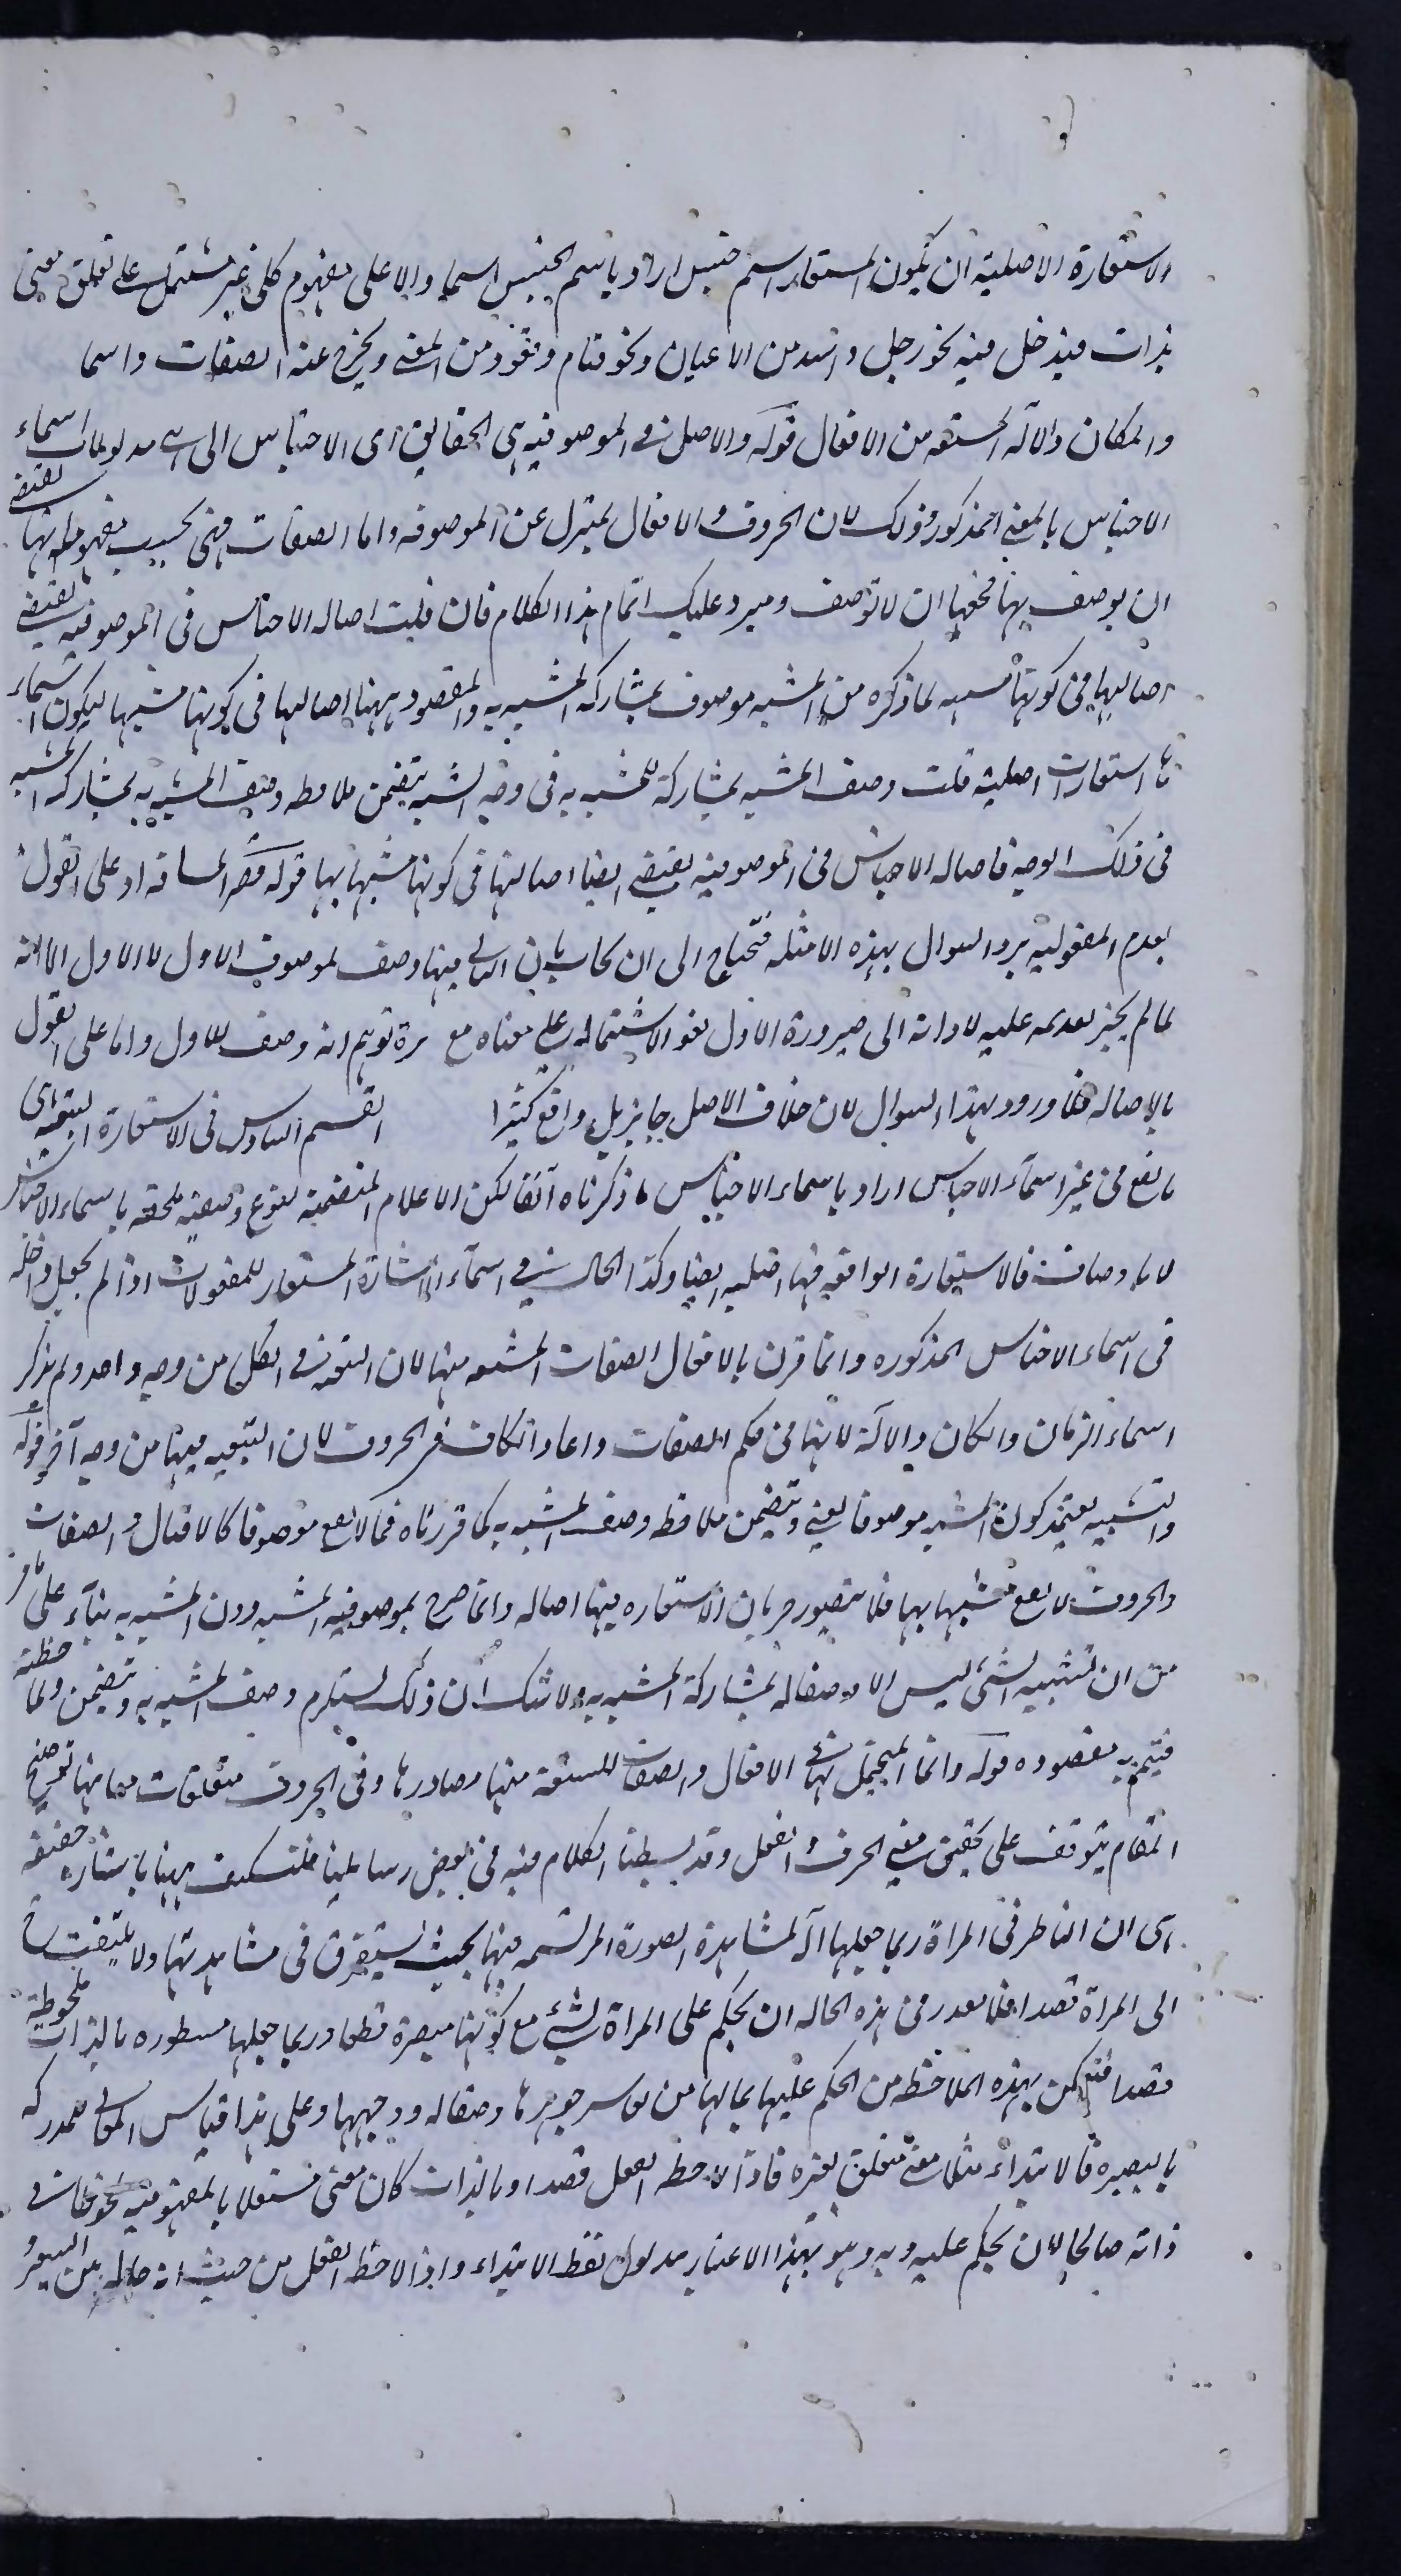 الاستعارة الاصلية ان يكون المستعار اسم جنس اراد باسم الجنس اسما دالا على مفهوم كلى غير مشتمل على تعلق معنى
بذات فيدخل فيه نحو رجل واسد من الاعيان ونحو قيام وقعود من المعنى ويخرج عنه الصفات واسما
والمكان والآلة المشتقه من الافعال قوله والاصل فى الموصوفيه هى الحقايق اى الاجناس التى هى مدلولات اسماء
الاجناس بالمعنى المذكور وذلك لان الحروف والافعال بمعزل عن الموصوفه واما الصفات فهى بحسب مفهوماتها يقتضى
ان يوصف بها فحقها ان لا توصف وسيرد عليك اتمام هذا الكلام فان قلت اصاله الاجناس فى الموصوفيه يقتضى
اصالتها فى كونها مشبهه لما ذكره من المشبه موصوف بمشاركه المشبه به والمقصود ههنا اصالتها فى كونها مشبها بها ليكون اسماء
ها استعارات اصلية قلت وصف المشبه بمشاركة للمشبه به فى وجه الشبه يتضمن ملاحظه وصف المشبه به بمشاركه المشبه
فى ذلك الوجه فاصاله الاجناس فى الموصوفيه يقتضى ايضا اصالتها فى كونها مشبها بها قوله قصر المسافه او على القول
بعدم المعقوليه يرد السوال بهذه الامثله فتحتاج الى ان يجاب بان الثانى منها وصف لموصوف الاول لا الاول الا انه
لما لم يجز تقديمه عليه لادائه الى صيرورة الاول لغوا لاشتماله على معناه مع توهم انه وصف للاول واما على القول
بالاصاله فلا ورود لهذا السوال لان خلاف الاصل جايز بل واقع كثيرا القسم السادس فى الاستعارة التبعيه اى
ما يقع فى غير اسماء الاجناس اراد باسماء الاجناس ما ذكرناه آنفا لكن الاعلام المتضمنة لنوع وصفيه ملحقه باسماء الاجناس
لا بالاوصاف فالاستعارة الواقعه فيها اصليه ايضا وكذا الحال فى اسماء الاشارة المستعار للمعقولات اذا لم يجعل داخله
فى اسماء الاجناس المذكوره وانما قرن بالافعال الصفات المشتقه منها لان التبعيه فى الكل من وجه واحد ولم يذكر
اسماء الزمان والمكان والآلة لانها فى حكم الصفات واعاد الكاف فى الحروف لان التبعيه فيها من وجه آخر قوله
والتشبيه يعتمد كون المشبه موصوفا يعنى ويتضمن ملاحظه وصف المشبه به كما قررناه فما لا يقع موصوفا كالافعال والصفات
والحروف لا يقع مشبها بها فلا يتصور جريان الاستعاره فيها اصاله وانما صرح بموصوفيه المشبه دون المشبه به بناء على ما مر
من ان تشبيه الشئ ليس الا وصفا له بمشاركة المشبه به ولا شك ان ذلك يستلزم وصف المشبه به ويتضمن ملاحظته
فيتم به مقصوده قوله وانما المحتمل لها فى الافعال والصفات المشتقة منها مصادرها وفى الحروف متعلقات معانيها توضيح
المقام يتوقف على تحقيق معنى الحرف والفعل وقد بسطنا الكلام فيه فى بعض رسايلنا فلنكتف ههنا باشاره خفيفه
هى ان الناظر فى المراة ربما جعلها آلة لمشاهدة الصورة المرتسمه فيها بحيث يستغرق فى مشاهدتها ولا يلتفت
الى المراة قصدا فلا يقدر فى هذه الحاله ان يحكم على المراة بشئ مع كونها مبصرة قطعا وربما جعلها منظوره بالذات ملحوظة
قصدا فتمكن بهذه الملاحظه من الحكم عليها بما لها من جوهرها وصقاله وجهها وعلى هذا قياس المعانى المدركه
بالبصيره فالابتداء مثلا معنى متعلق بغيره فاذا لاحظه العقل قصدا وبالذات كان معنى مستقلا بالمفهوميه ملحوظا فى
ذاته صالحا لان يحكم عليه وبه وهو بهذا الاعتبار مدلول لفظ الابتداء واذا لاحظه العقل من حيث انه حاله بين السير و